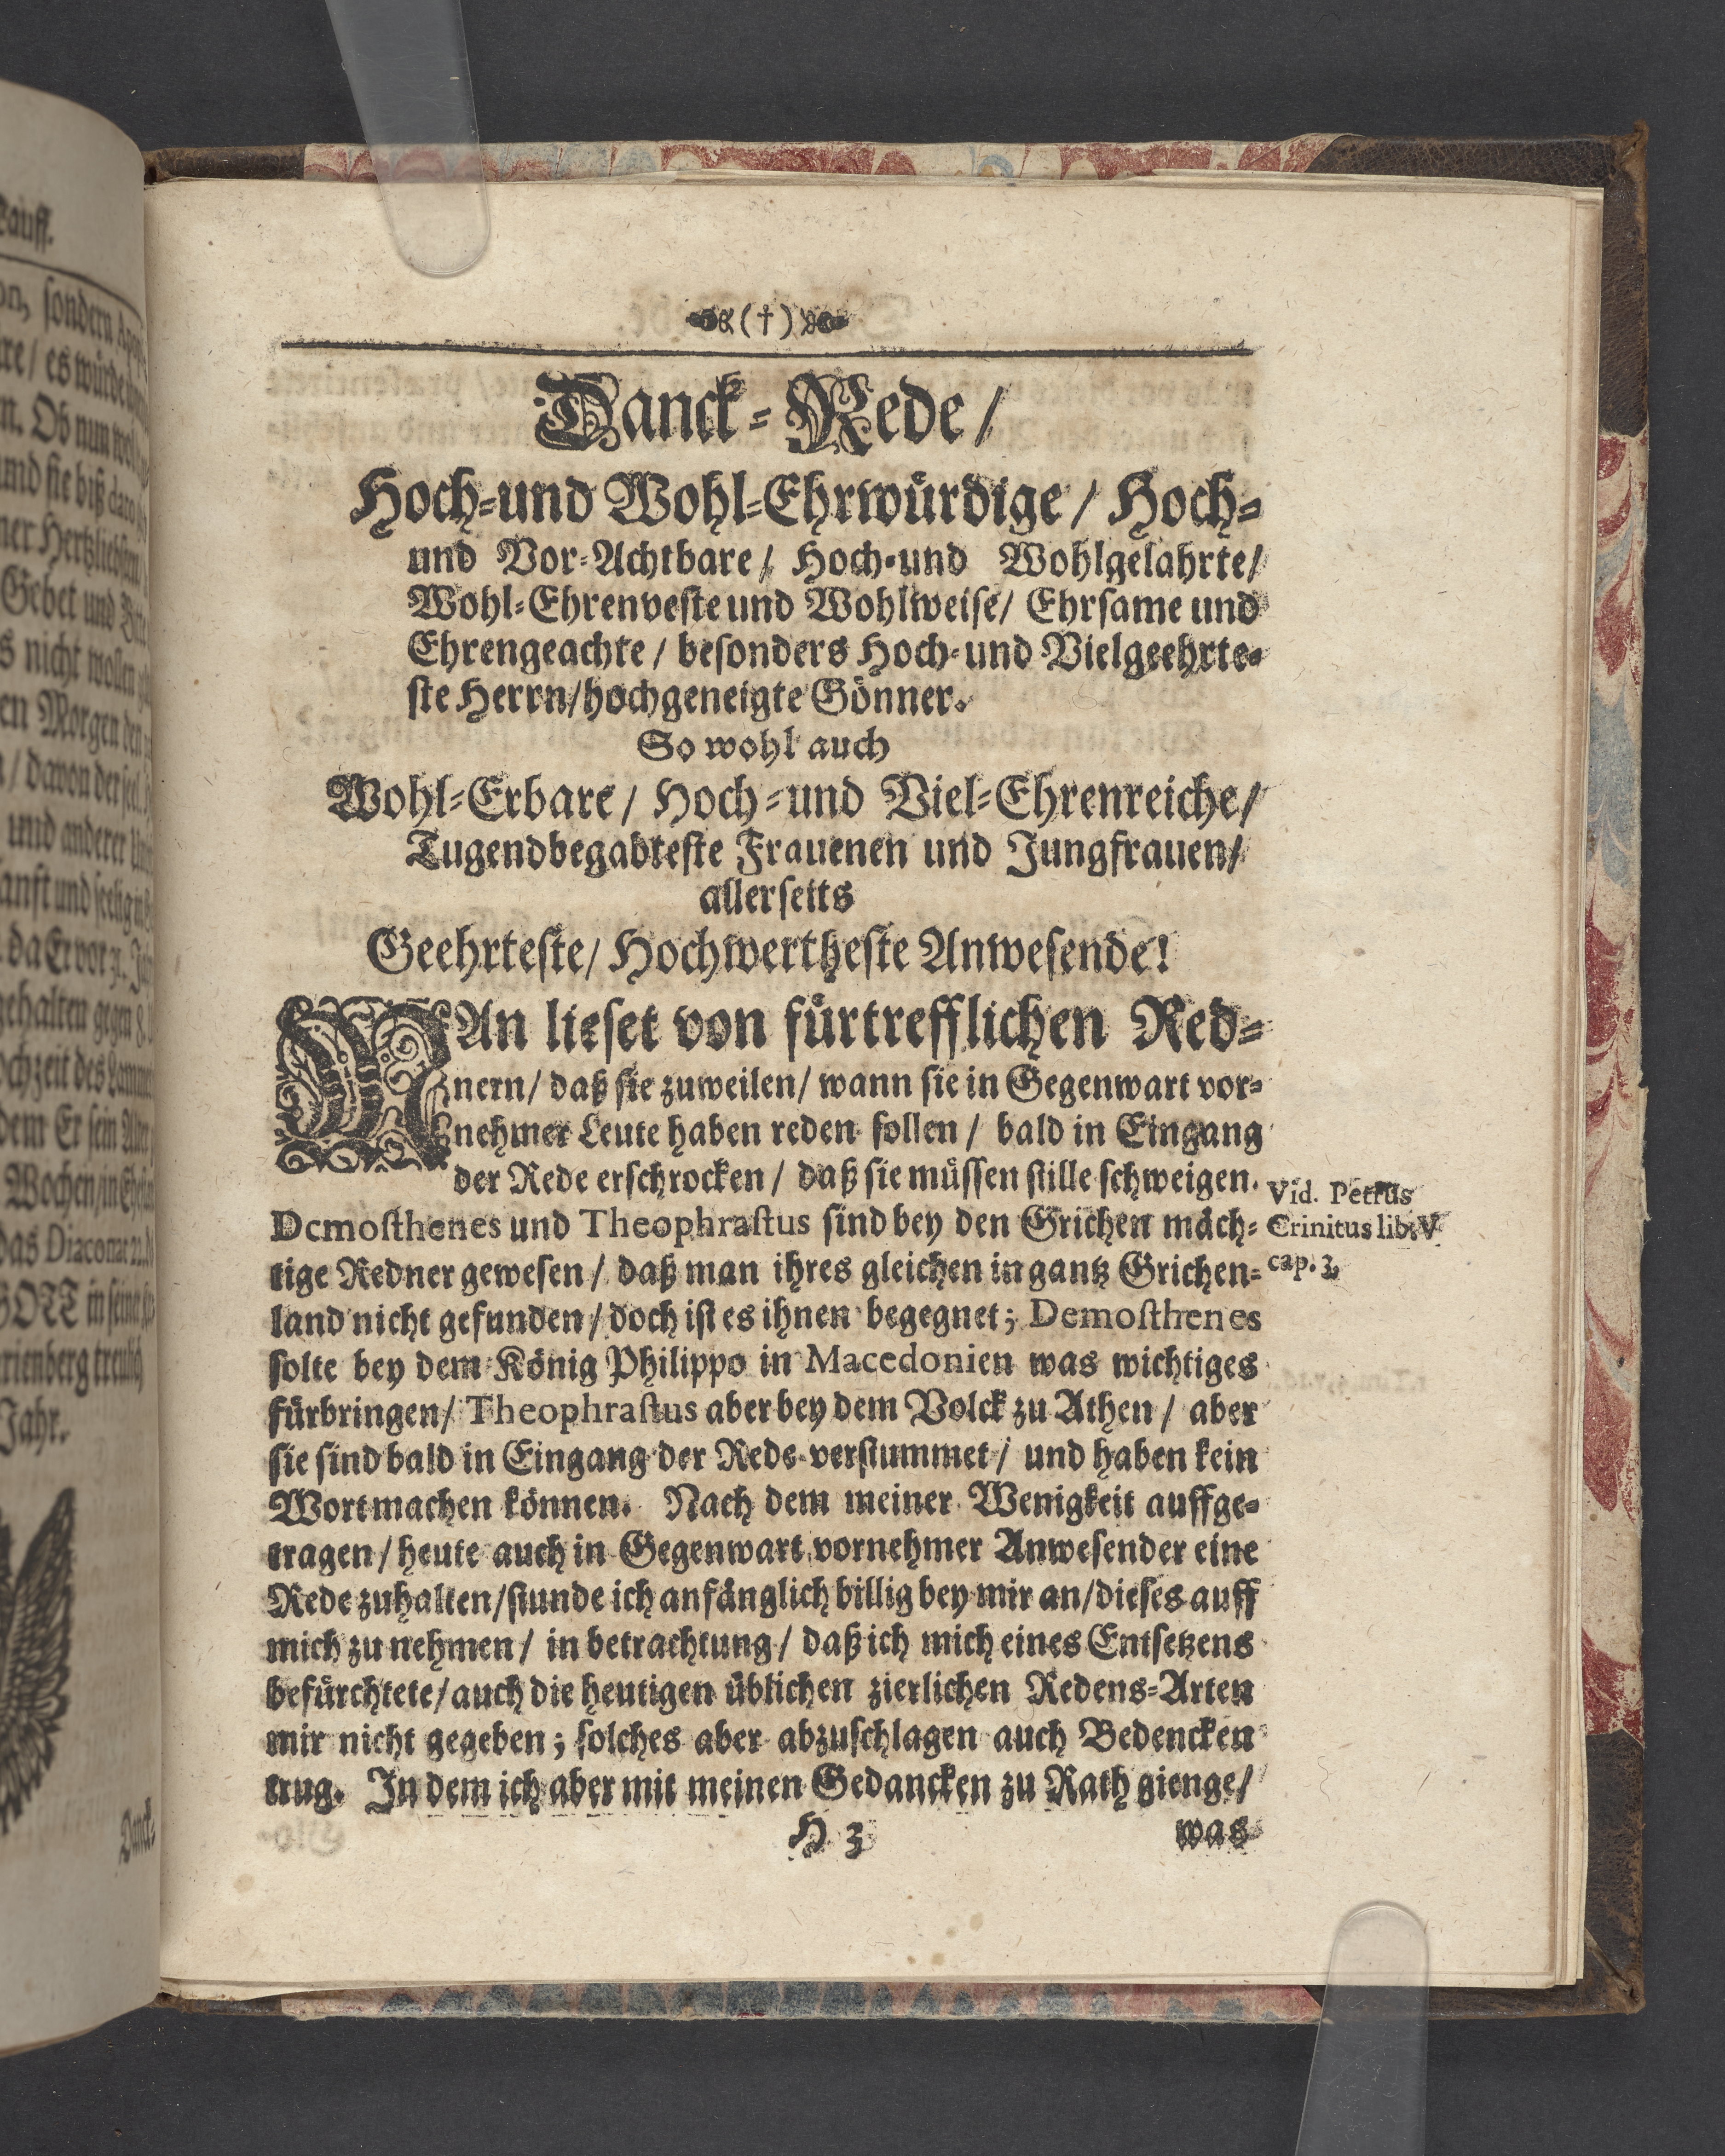 (†)
Danck-Rede/
Hoch-und Wohl-Ehrwürdige/ Hoch-
und Vor-Achtbare/ Hoch-und Wohlgelahrte/
Wohl-Ehrenveste und Wohlweise/ Ehrsame und
Ehrengeachte/ besonders Hoch-und Vielgeehrte-
ste Herrn/hochgeneigte Gönner.
So wohl auch
Wohl-Erbare/ Hoch-und Viel-Ehrenreiche/
Tugendbegabteste Frauenen und Jungfrauen/
allerseits
Geehrteste/ Hochwertheste Anwesende!
MAn lieset von fürtrefflichen Red-
nern/ daß sie zuweilen/ wann sie in Gegenwart vor-
nehmer Leute haben reden sollen/ bald in Eingang
der Rede erschrocken/ daß sie müssen stille schweigen.
Demosthenes und Theophrastus sind bey den Grichen mäch-
tige Redner gewesen/ daß man ihres gleichen in gantz Grichen-
land nicht gefunden/ doch ist es ihnen begegnet; Demosthenes
solte bey dem König Philippo in Macedonien was wichtiges
fürbringen/ Theophrastus aber bey dem Volck zu Athen/ aber
sie sind bald in Eingang der Rede verstummet/ und haben kein
Wort machen können. Nach dem meiner Wenigkeit auffge-
tragen/ heute auch in Gegenwart vornehmer Anwesender eine
Rede zuhalten/stunde ich anfänglich billig bey mir an/dieses auff
mich zu nehmen/ in betrachtung/ daß ich mich eines Entsetzens
befürchtete/auch die heutigen üblichen zierlichen Redens-Arten
mir nicht gegeben; solches aber abzuschlagen auch Bedencken
trug. In dem ich aber mit meinen Gedancken zu Rath gienge/
H 3
was
Vid. Petrus
Crinitus lib. V
cap. 3.